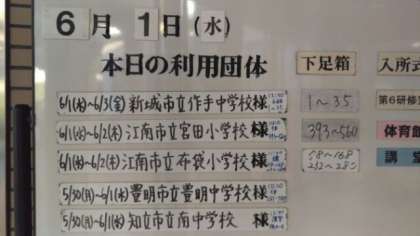 6月1日(水)
本日の利用団体 下足箱 入所式
6/1(水)~6/3(金)新城市立作手中学校様 1~35 第6研修
6/1(水)~6/2(木)江南市立宮田小学校様 393~560 体育館
6/1(水)~6/2(木)江南市立布袋小学校様 58~168 232~280 講堂
5/30(月)~6/1(水)豊明市立豊明中学校様
5/30(月)~6/1(水)知立市立南中学校様